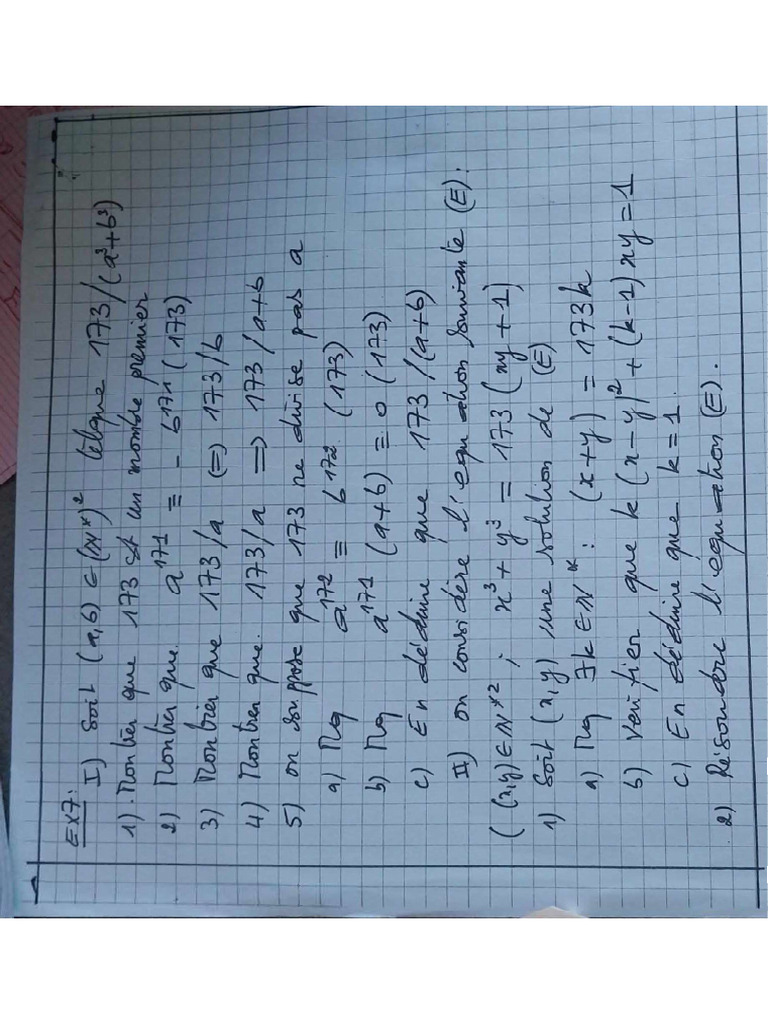 EX7:
I) Soit (a,b) ∈ (IN*)² telque 173/(a³+b³)
1). Montrer que 173 est un nombre premier
2) Montrer que. a¹⁷¹ ≡ - b¹⁷¹ (173)
3) Montrer que 173/a ⇔ 173/b
4) Montrer que. 173/a ⇒ 173/a+b
5) on suppose que 173 ne divise pas a
a) Mq a¹⁷² ≡ b¹⁷² (173)
b) Mq a¹⁷¹ (a+b) ≡ 0 (173)
c) En déduire que 173/(a+b)
II) on considère l'equation suivante (E):
((x,y) ∈ IN*² ; x³ + y³ = 173 (xy +1)
1) Soit (x,y) une solution de (E)
a) Mq ∃k ∈ IN* : (x+y) = 173k
b) Verifier que k(x-y)² + (k-1)xy = 1
c) En déduire que k=1.
2) Résoudre l'équation (E).